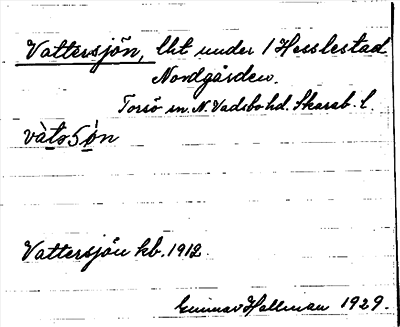 Vattersjön, lht under 1 Hesslestad
Nordgården.
Torsö sn. N. Vadsbo hd. Skarab. l.
vàts5ȯn
Vattersjön kb. 1912
Gunnar Hallman 1929.